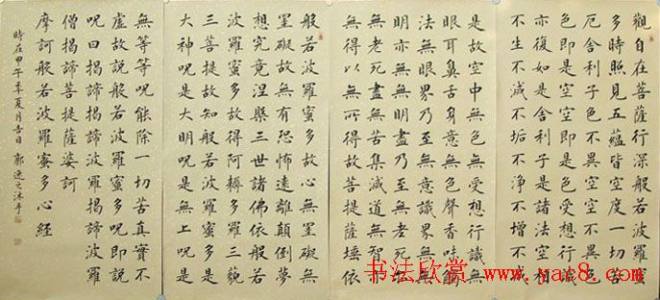 觀自在菩薩行深般若波羅蜜
多時照見五蘊皆空度一切苦
厄舍利子色不異空空不異色
色即是空空即是色受想行識
亦復如是舍利子是諸法空相
不生不滅不垢不淨不增不減
是故空中無色無受想行識無
眼耳鼻舌身意無色聲香味觸
法無眼界乃至無意識界無無
明亦無無明盡乃至無老死亦
無老死盡無苦集滅道無智亦
無得以無所得故菩提薩埵依
般若波羅蜜多故心無罣礙無
罣礙故無有恐怖遠離顛倒夢
想究竟涅槃三世諸佛依般若
波羅蜜多故得阿耨多羅三藐
三菩提故知般若波羅蜜多是
大神呪是大明呪是無上呪是
無等等呪能除一切苦真實不
虛故說般若波羅蜜多呪即說
呪曰揭諦揭諦波羅揭諦波羅
僧揭諦菩提薩婆訶
摩訶般若波羅蜜多心經
時在甲午年夏月吉日 郭沐手
书法欣赏 www.yac8.com